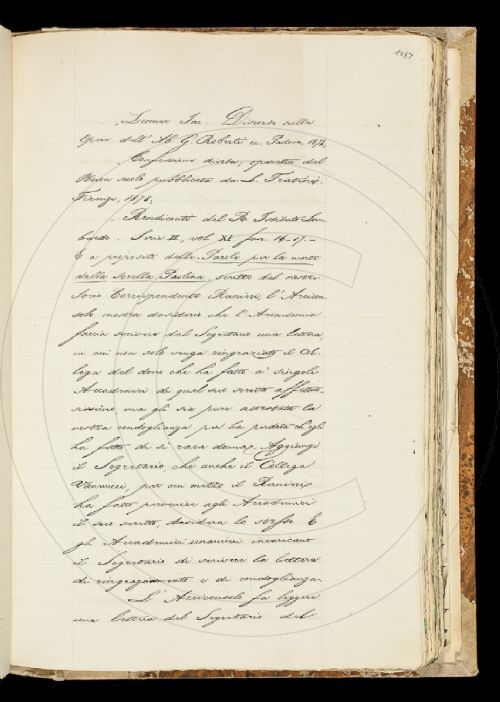 1237
Discorso sulla
Opere dell' Ab. G. Roberti ec. Padova 1878;
Confessione divota; operetta del
Buon secolo pubblicata da L.
Firenze, 1878;
Rendiconti del R. Istituto Lom
bardo. Serie II, vol. XI fasc. 16-17. -
E a proposito delle Parole per la morte
della Sorella Paolina, scritte dal nostro
Socio Corrispondente Ranieri, l'Arcicon
solo mostra desiderio che l'Accademia
faccia scrivere dal Segretario una lettera
in cui non solo venga ringraziato il Col
lega del dono che ha fatto a' singoli
Accademici di quel suo scritto affettuo
sissimo, ma gli sia pure attestata la
nostra condoglianza per la perdita ch'egli
ha fatto di sì rara donna. Aggiunge
il Segretario, che anche il Collega
Vannucci, per cui mezzo il Ranieri
ha fatto pervenire agli Accademici
il suo scritto, desidera lo stesso. E
gli Accademici unanimi incaricano
il Segretario di scrivere la lettera
di ringraziamento e di condoglianza.
L'Arciconsolo fa leggere
una lettera del Segretario del